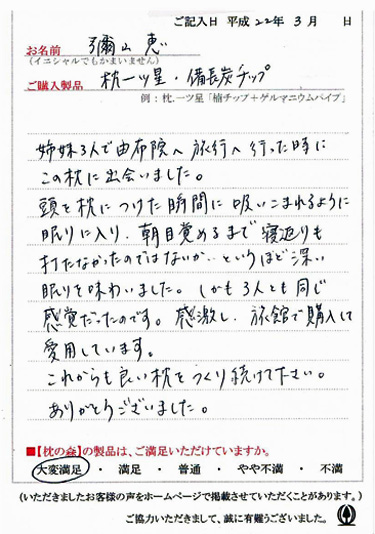 ご記入日 平成22年 3月 日
お名前 弥山 恵
(イニシャルでもかまいません)
ご購入製品 枕一ツ星・備長炭チップ
例：枕.一ツ星「楠チップ+ゲルマニウムパイプ」
姉妹3人で由布院へ旅行へ行った時に
この枕に出会いました。
頭を枕につけた瞬間に吸いこまれるように
眠りに入り、朝目覚めるまで寝返りも
打たなかったのではないか、というほど深い
眠りを味わいました。しかも3人とも同じ
感覚だったのです。感激し、旅館で購入して
愛用しています。
これからも良い枕をつくり続けて下さい。
ありがとうございました。
■【枕の森】の製品は、ご満足いただけていますか。
大変満足 ・ 満足 ・ 普通 ・ やや不満 ・ 不満
(いただきましたお客様の声をホームページで掲載させていただくことがあります。)
ご協力いただきまして、誠に有難うございました。